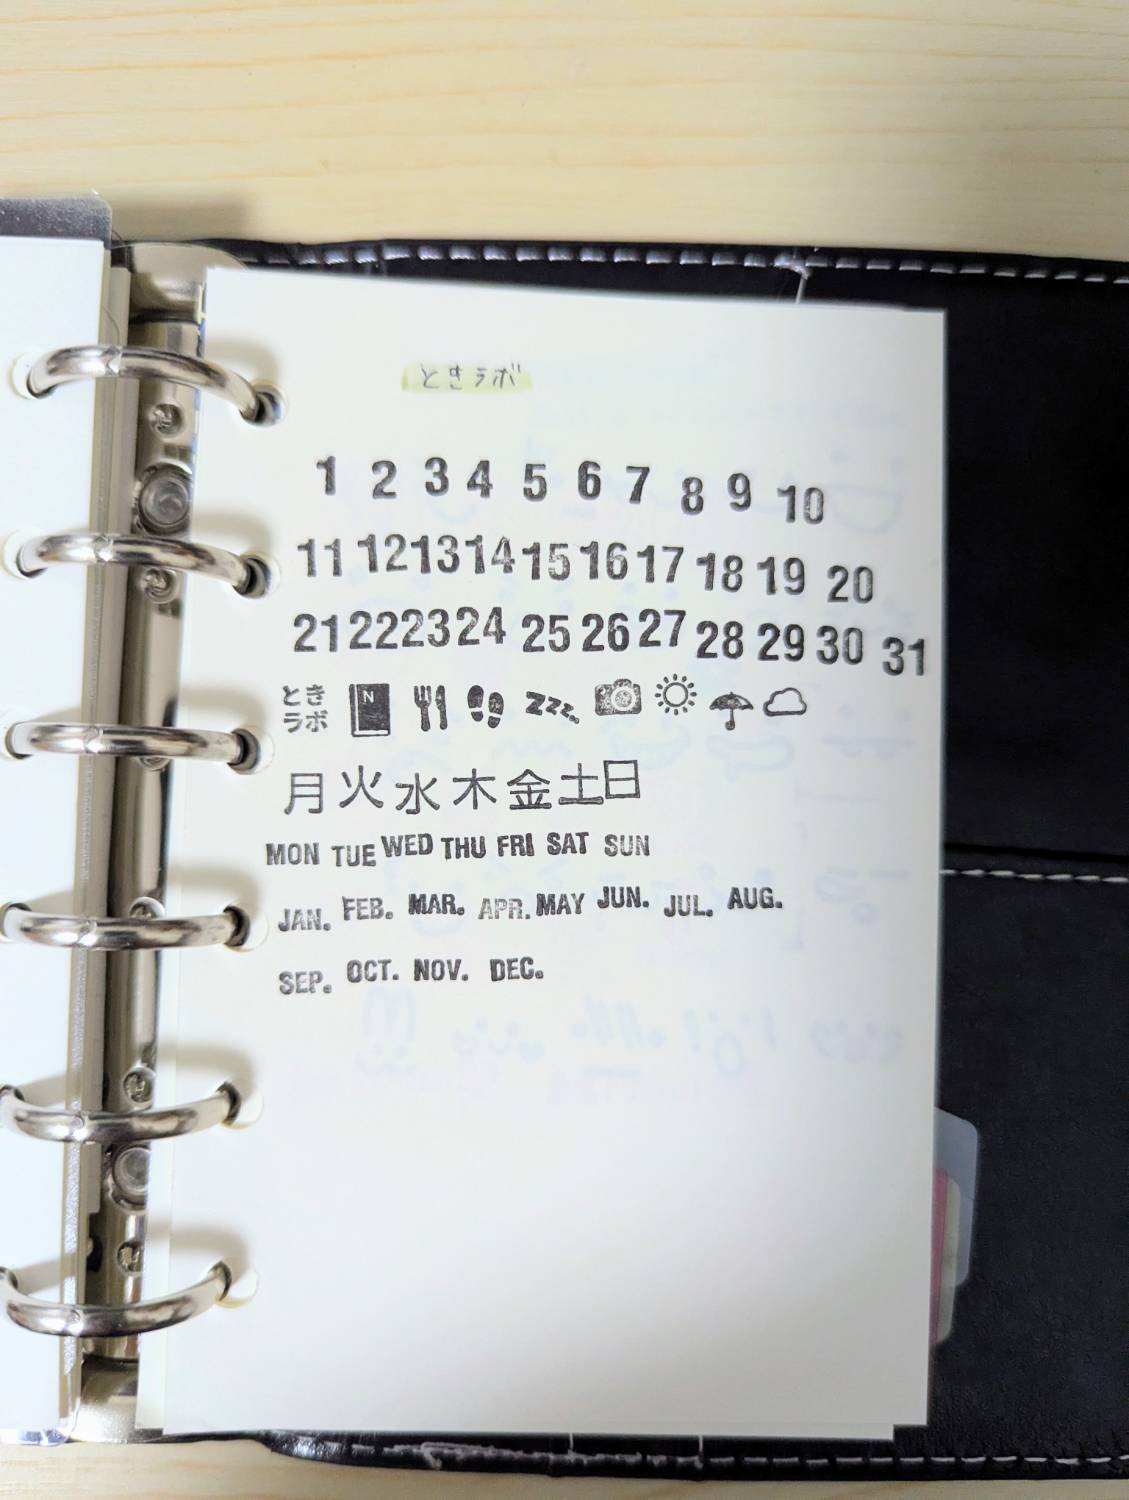 ときラボ
1 2 3 4 5 6 7 8 9 10
11 12 13 14 15 16 17 18 19 20
21 22 23 24 25 26 27 28 29 30 31
とき
ラボ
N
zzz
月 火 水 木 金 土 日
MON TUE WED THU FRI SAT SUN
JAN. FEB. MAR. APR. MAY JUN. JUL. AUG.
SEP. OCT. NOV. DEC.